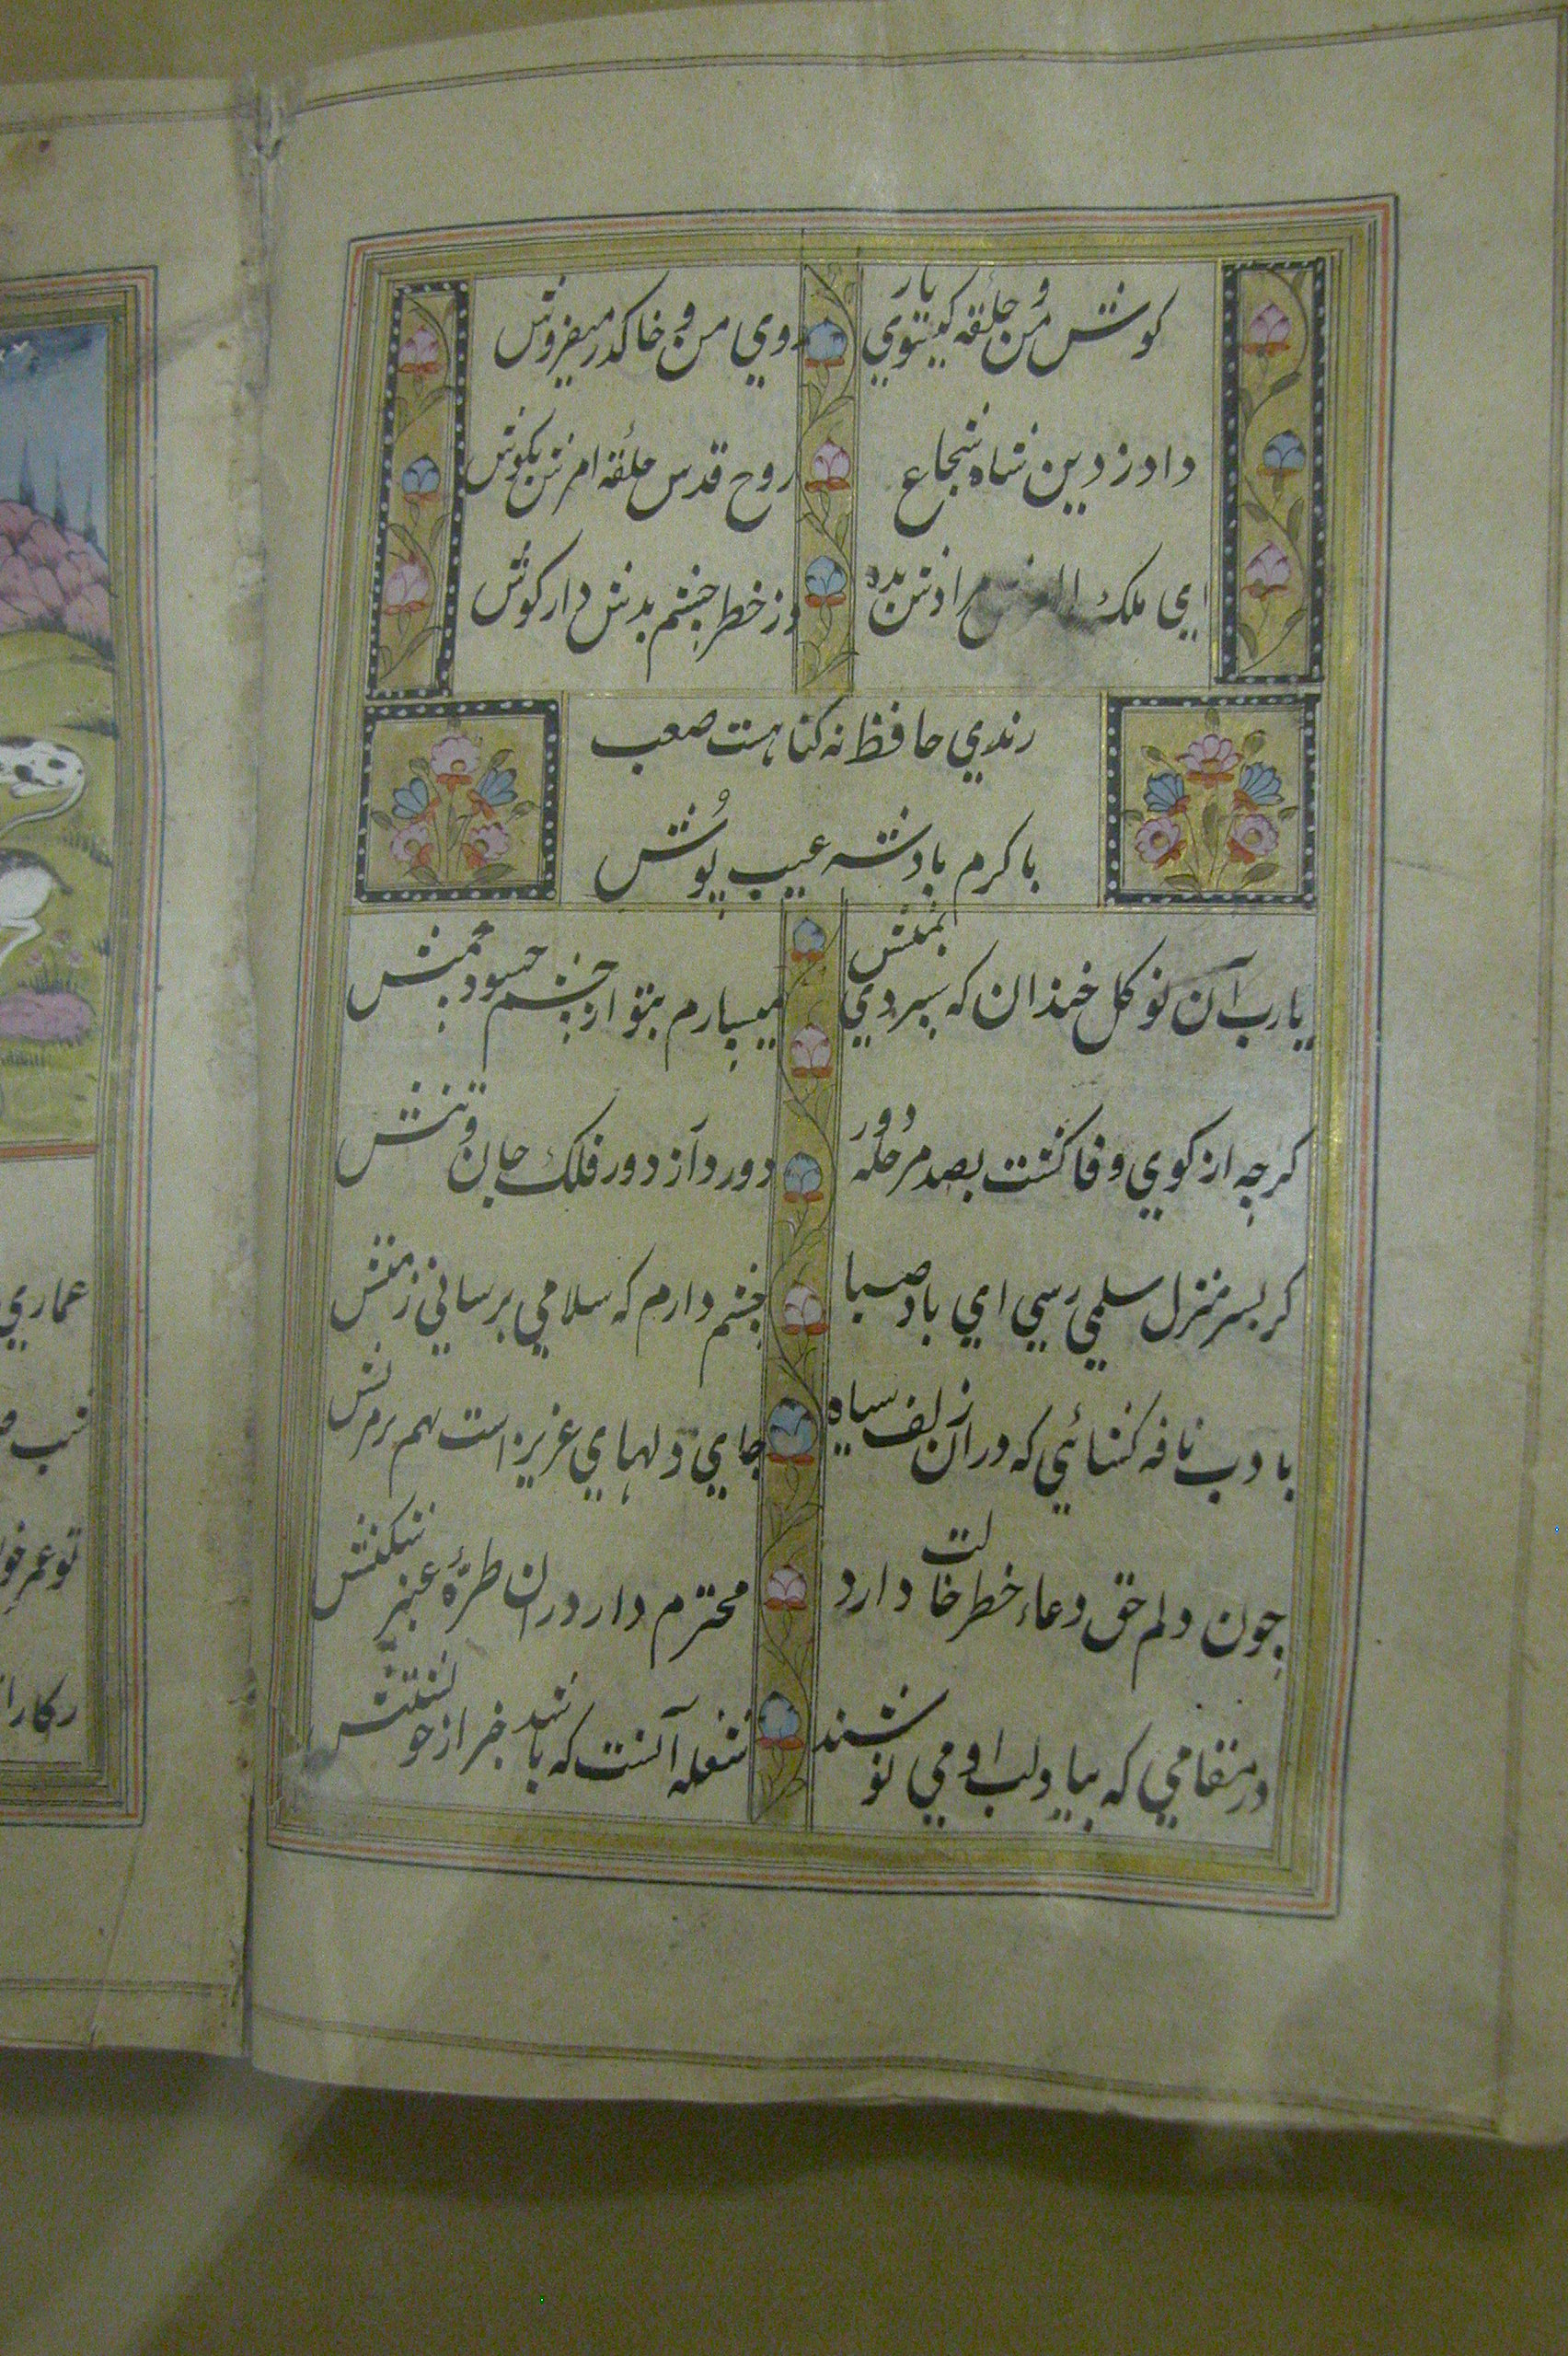 کوش من و حلقه کیسوي یار
روي من و خاک در میفروش
داور دین شاه شجاع
روح قدس حلقه امرش بکوش
اي ملک مرادش بده
وز خطر چشم بدش دار کوش
رندي حافظ نه کناهست صعب
با کرم بادشه عیب پوش
یارب آن نوکل خندان که سپردي بمنش
میسپارم بتو از چشم حسود چمنش
کرچه از کوي وفا کشت بصد مرحله دور
دور داد از دور فلک جان و تنش
کر بسر منزل سلمي رسي اي باد صبا
چشم دارم که سلامي برساني ز منش
بادب نافه کشائي که دران زلف سیاه
جاي دلهاي عزیز است بهم بر مزنش
چون دلم حق دعاء خط خالت دارد
محترم دار دران طره عنبر شکنش
در مقامي که بیاد لب او مي نوشند
سفله آنست که باشد خبر از خویشتنش
عماري
رکار